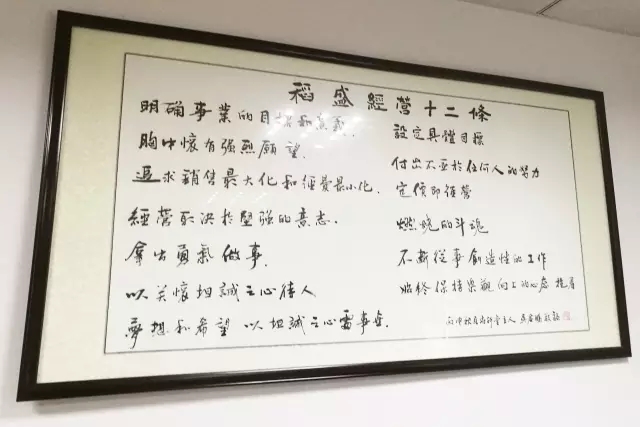 稻盛經營十二條
明确事業的目的和意義.
設定具體目標
胸中懷有强烈願望.
付出不亞於任何人的努力
追求銷售最大化和經費最小化.
定價即經營
經營取決於堅强的意志.
燃燒的斗魂
拿出勇氣做事.
不斷從事創造性的工作
以关懷坦誠之心待人
始終保持樂觀向上的心態 抱着
夢想和希望 以坦誠之心